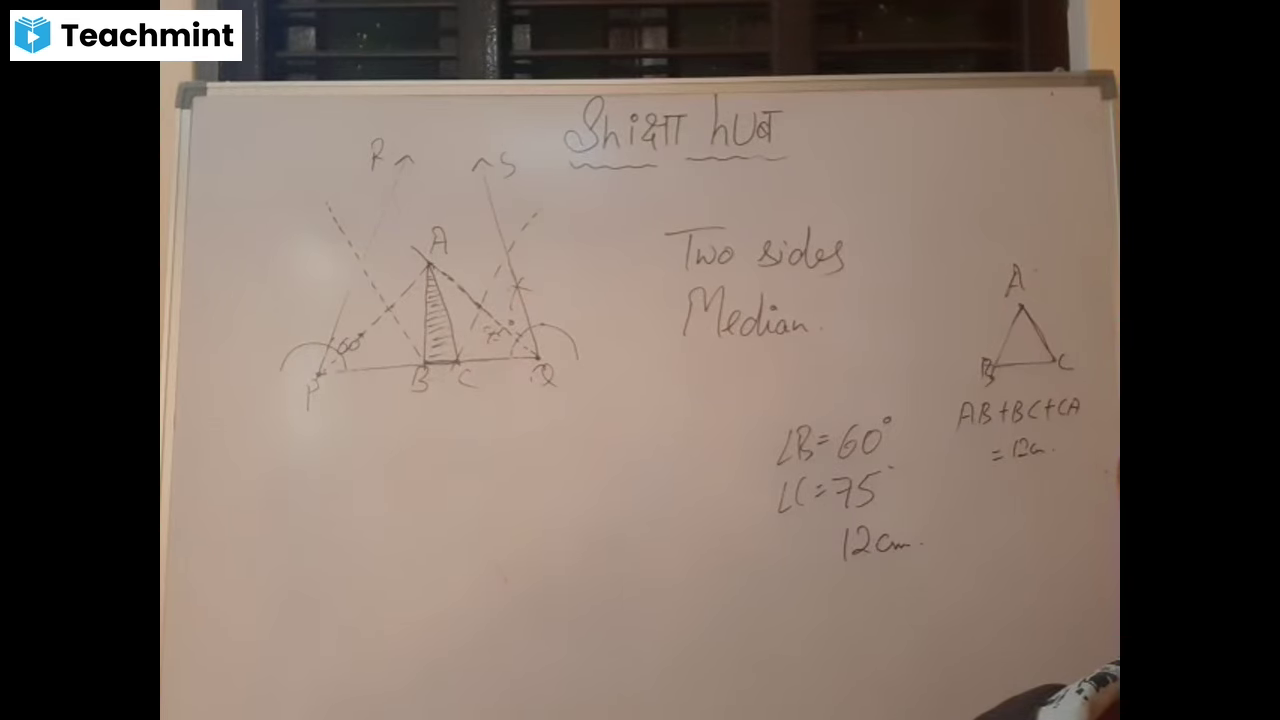 Teachmint
Shiक्षा hUब
R S
A
60° 75°
P B C Q
Two sides
Median.
A
B C
AB+BC+CA
= 12cm.
∠B=60°
∠C=75°
12cm.